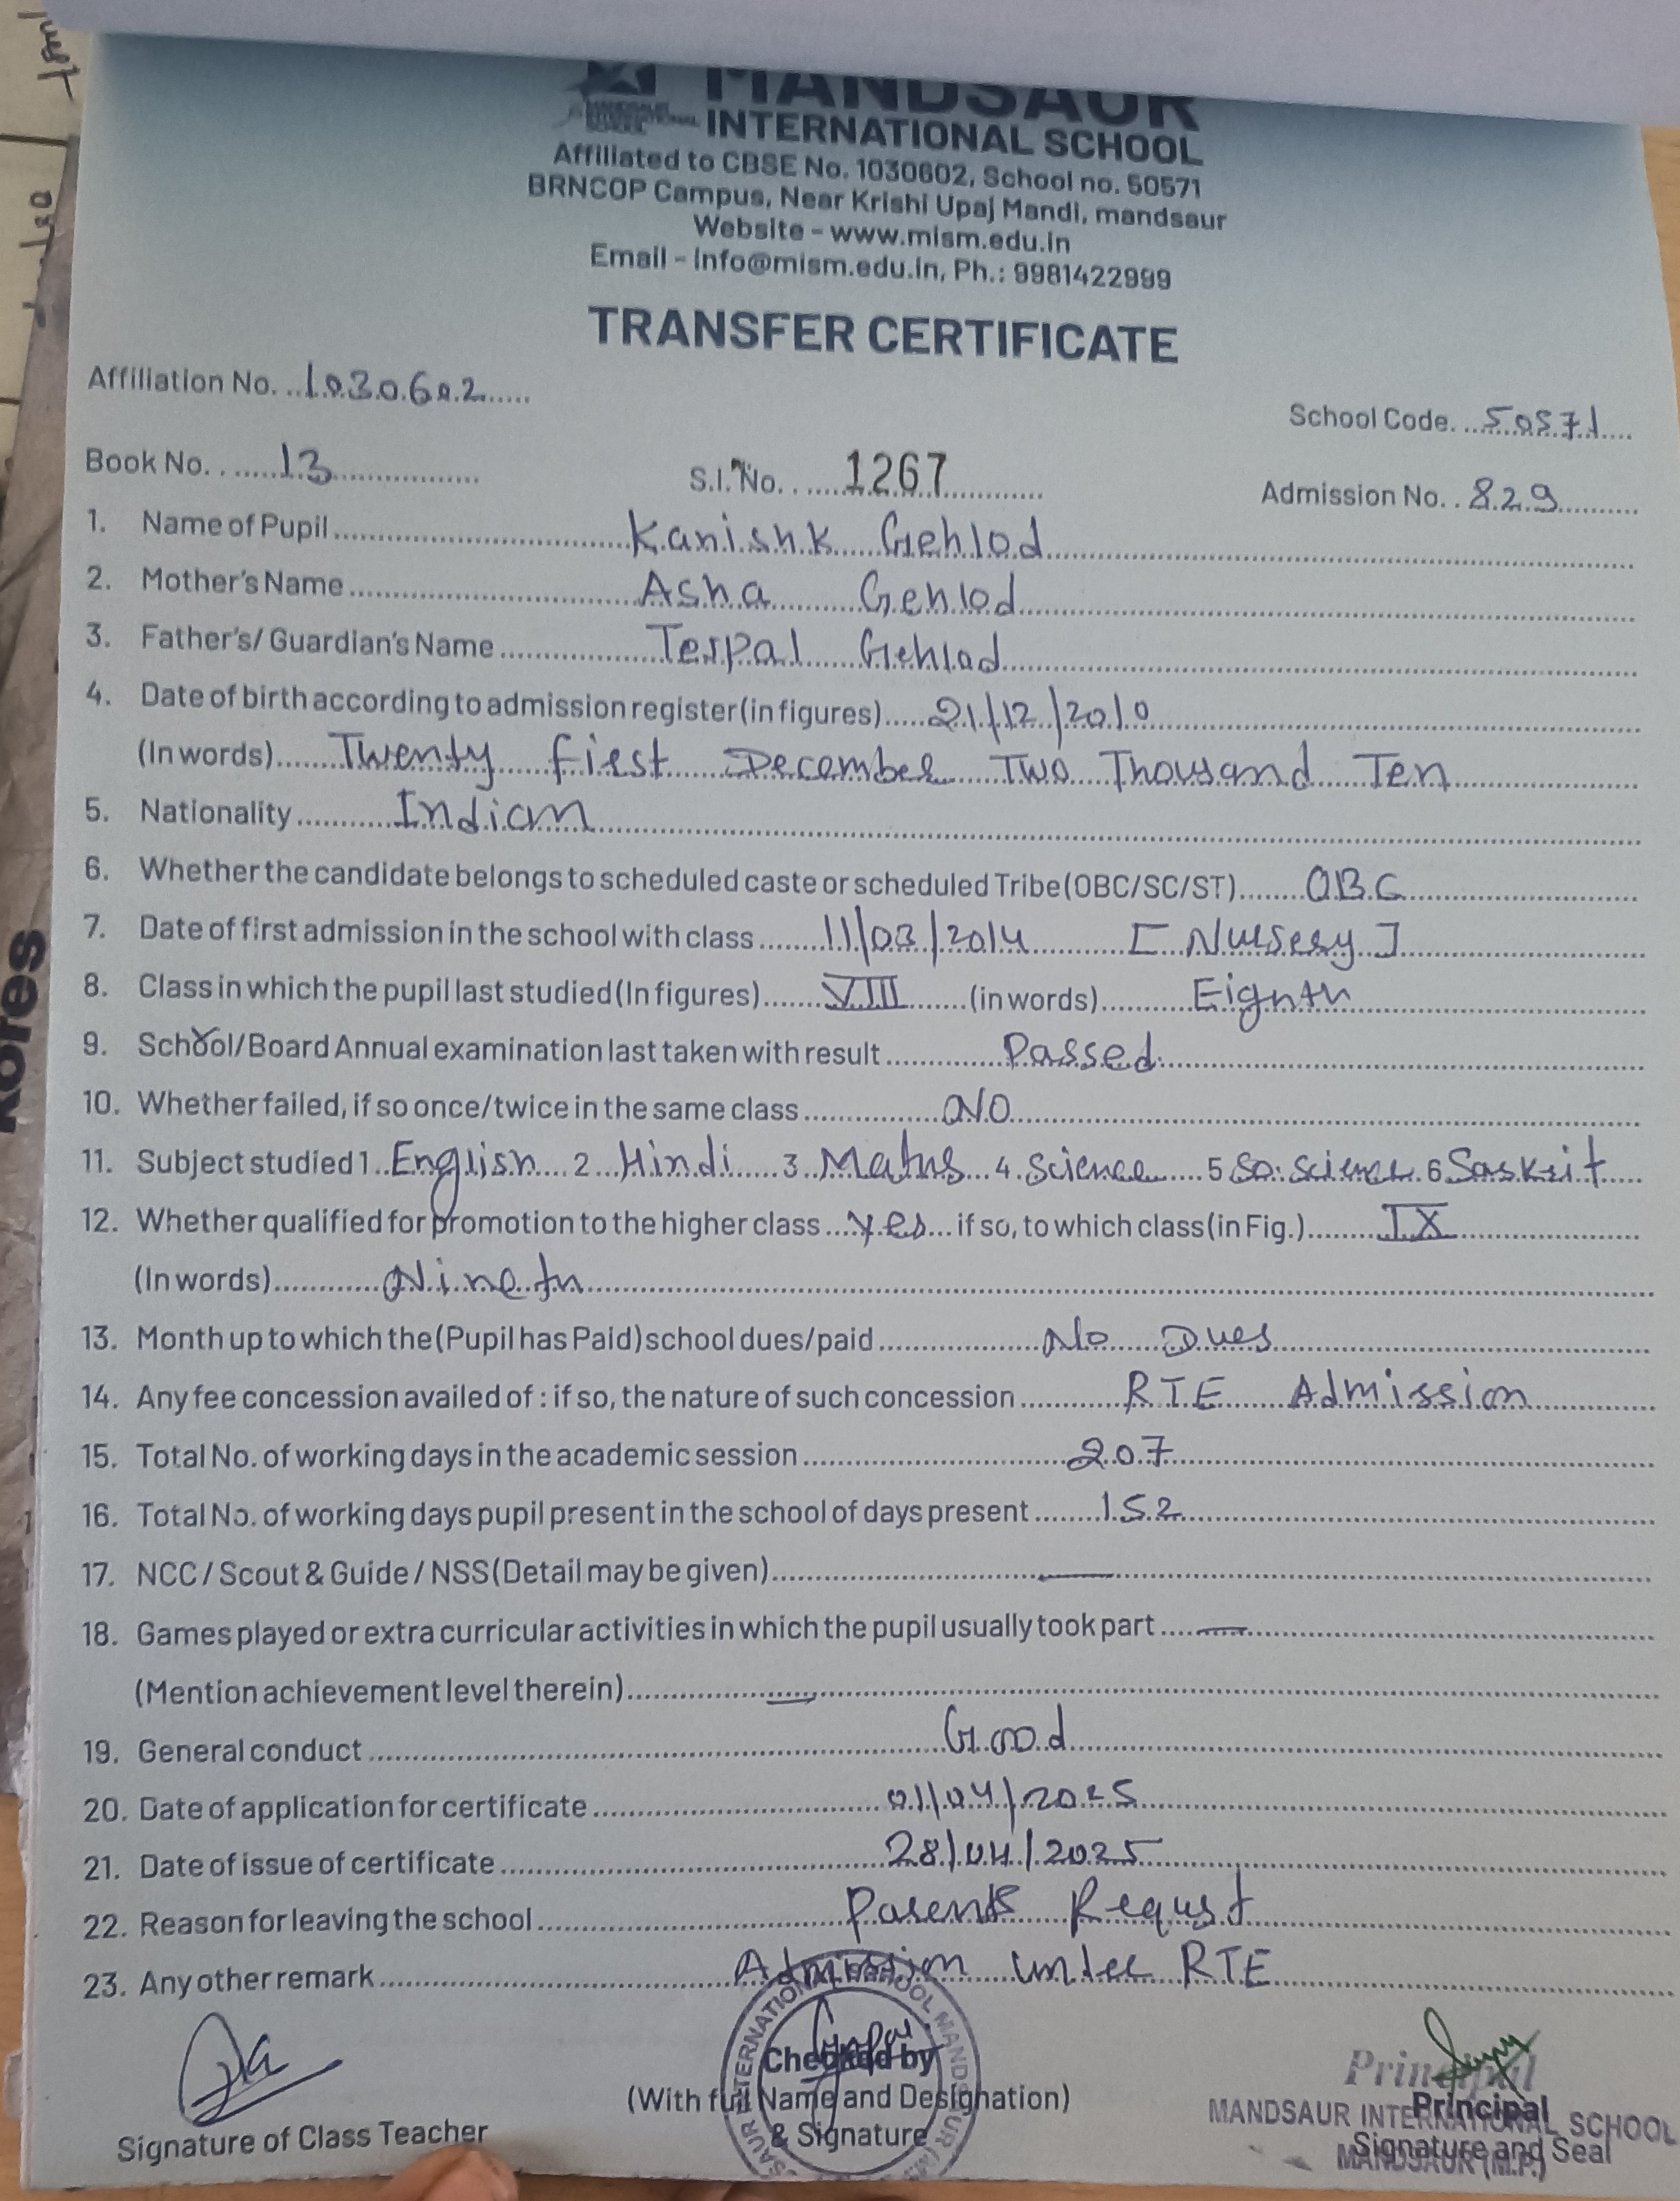 MANDSAUR
INTERNATIONAL SCHOOL
Affiliated to CBSE No. 1030602, School no. 50571
BRNCOP Campus, Near Krishi Upaj Mandi, mandsaur
Website - www.mism.edu.in
Email - info@mism.edu.in, Ph.: 9981422999
TRANSFER CERTIFICATE
Affiliation No. 1030602
School Code. 50571
Book No. 13 S.I. No. 1267 Admission No. 829
1. Name of Pupil Kanishk Gehlod
2. Mother's Name Asha Gehlod
3. Father's/ Guardian's Name Gehlod
4. Date of birth according to admission register (in figures) 21/12/2010
(In words) Twenty first December Two Thousand Ten
5. Nationality Indian
6. Whether the candidate belongs to scheduled caste or scheduled Tribe (OBC/SC/ST) OBC
7. Date of first admission in the school with class 11/03/2014 [ Nursery ]
8. Class in which the pupil last studied (In figures) VIII (in words) Eighth
9. School/Board Annual examination last taken with result Passed
10. Whether failed, if so once/twice in the same class NO
11. Subject studied 1 English 2 Hindi 3 Maths 4 Science 5 So. Science 6 Saskrit
12. Whether qualified for promotion to the higher class yes if so, to which class (in Fig.) IX
(In words) Nineth
13. Month up to which the (Pupil has Paid) school dues/paid No Dues
14. Any fee concession availed of : if so, the nature of such concession RTE Admission
15. Total No. of working days in the academic session 207
16. Total No. of working days pupil present in the school of days present 152
17. NCC / Scout & Guide / NSS (Detail may be given) —
18. Games played or extra curricular activities in which the pupil usually took part —
(Mention achievement level therein) —
19. General conduct Good
20. Date of application for certificate 01/04/2025
21. Date of issue of certificate 28/04/2025
22. Reason for leaving the school Parents Requst
23. Any other remark Admission under RTE
Signature of Class Teacher
Checked by
(With full Name and Designation)
& Signature
Principal
MANDSAUR INTERNATIONAL SCHOOL
MANDSAUR (M.P.)
Principal
Signature and Seal